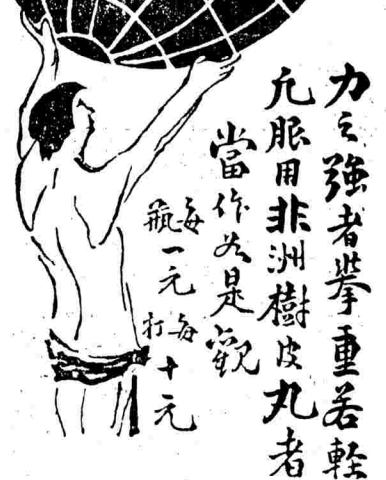 力之強者拏重若輕
凡服用非洲樹皮丸者
當作如是觀
每瓶一元
每打十元